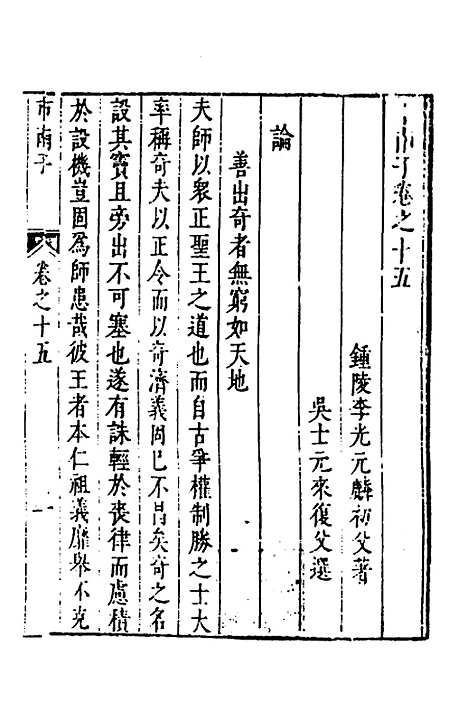 市南子卷之十五
鍾陵李光元麟初父著
吳士元來復父選
論
善出奇者無窮如天地
夫師以衆正聖王之道也而自古爭權制勝之士大
率稱奇夫以正令而以奇濟義固已不冐矣奇之名
設其竇且旁出不可塞也遂有誅輕於喪律而慮積
於設機豈固爲師患哉彼王者本仁祖義靡舉不克
市南子
卷之十五
一